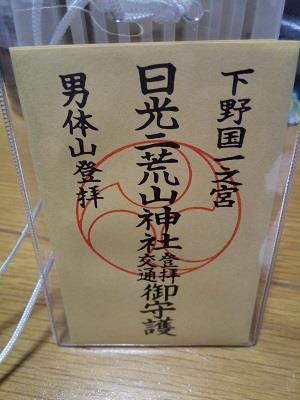 下野国一之宮
日光二荒山神社登拝交通御守護
男体山登拝